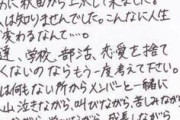 に秋田から上京して来ました。
人は知りませんでした。こんなに人生
変わるなんて…。
達、学校、部活、恋愛を捨て
くないのならもう一度考えて下さい。
は何もない所からメンバーと一緒に
山泣きながら、叫びながら、苦しみなが
がら、成長しながら